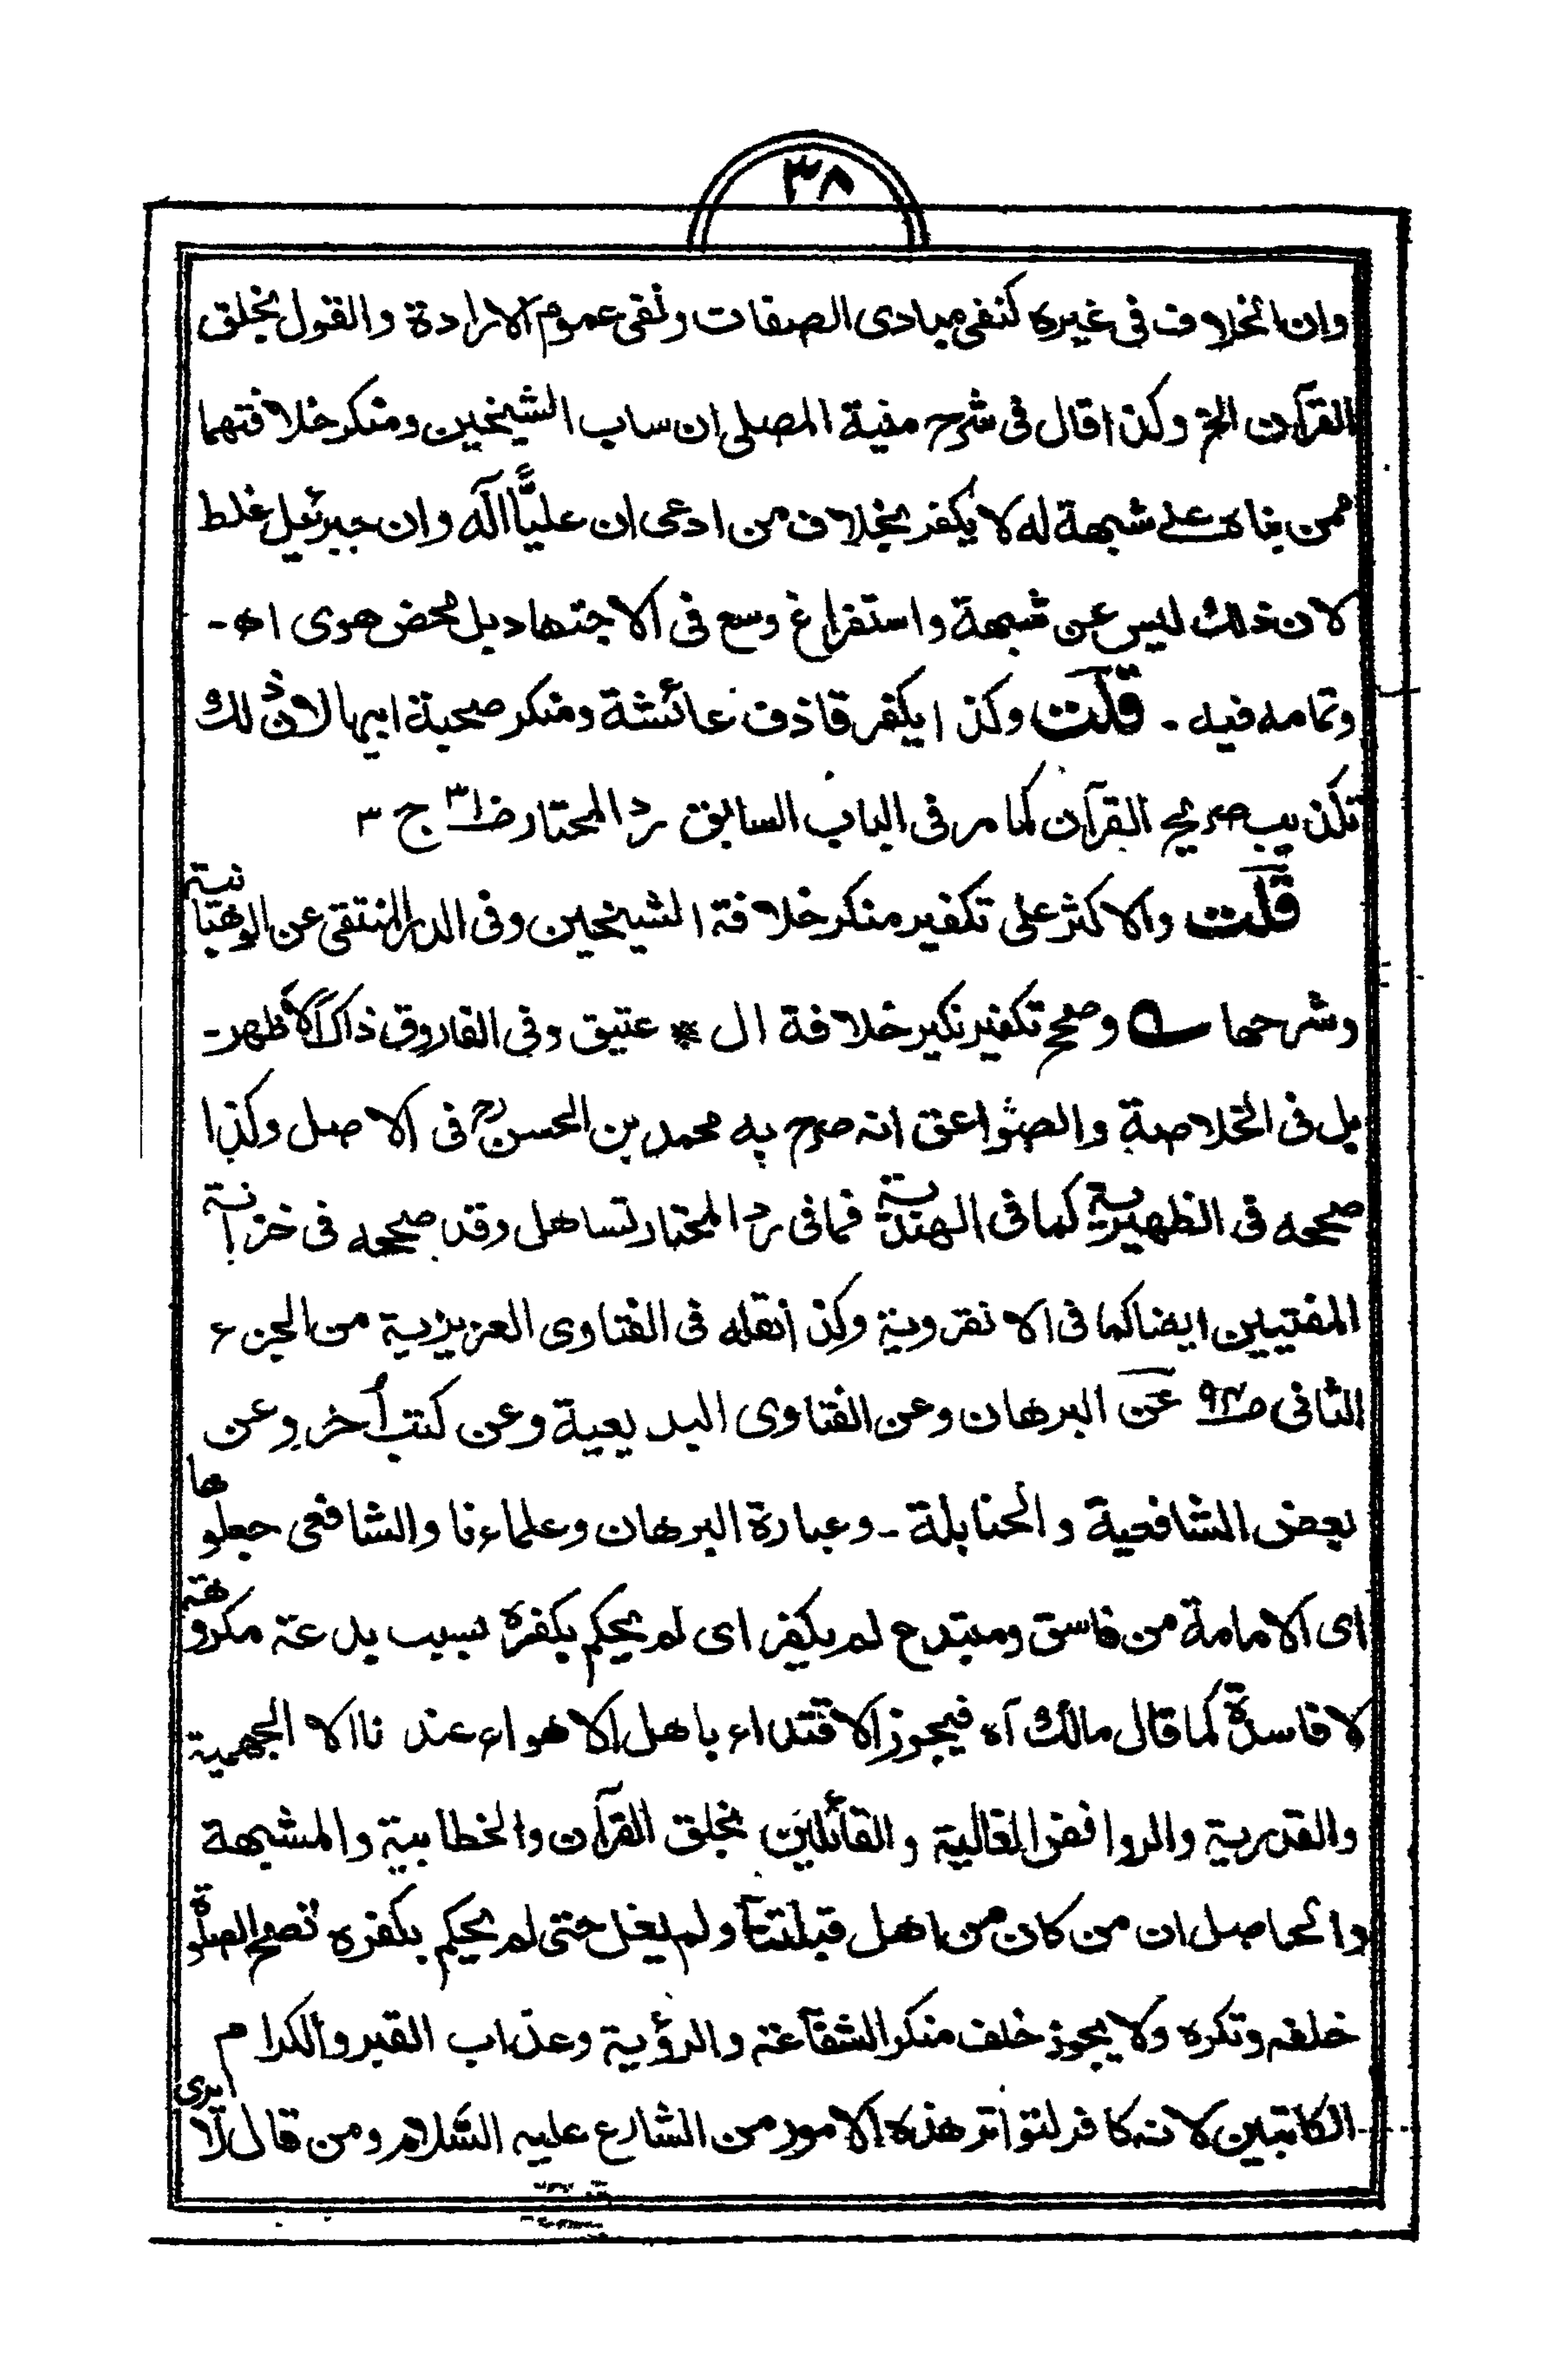 ٣٨
وان الخلاف فی غیرہ کنفی مبادی الصفات ونفی عموم الارادة والقول بخلق
القرآن الخ وکذا قال فی شرح منیة المصلی ان ساب الشیخین ومنکر خلافتهما
ممن بناہ علی شبهة له لا یکفر بخلاف من ادعی ان علیًّا الٰه وان جبرئیل غلط
لان ذلك لیس عن شبهة واستفراغ وسع فی الاجتهاد بل محض هوی اھ۔
وتمامه فیه ۔ قلت وکذا یکفر قاذف عائشة ومنکر صحبة ابیها لان ذلك
تکذیب صریح القرآن کما مر فی الباب السابق رد المحتار ج ٣
قلت والاکثر علی تکفیر منکر خلافة الشیخین وفی الدر المنتقی عن الوهبانیة
وشرحها وصحح تکفیر نکیر خلافة ال * عتیق وفی الفاروق ذاك الاظهر۔
بل فی الخلاصة والصواعق انه صرح به محمد بن الحسنؒ فی الاصل وکذا
صححه فی الظهیریة کما فی الهندیة فما فی رد المختار تساهل وقد صححه فی خزانة
المفتیین ایضا کما فی الانقرویة وکذا نقله فی الفتاوی العزیزیة من الجزء
الثانی ص٩٤ عن البرهان وعن الفتاوی البدیعیة وعن کتب أخر وعن
بعض الشافعیة والحنابلة ۔ وعبارة البرهان وعلماءنا والشافعی جعلوها
ای الامامة من فاسق ومبتدع لم یکفر ای لم یحکم بکفرہ بسبب بدعته مکروهة
لا فاسدة کما قال مالك آہ فیجوز الاقتداء باهل الاهواء عندنا الا الجهمیة
والقدریة والروافض الغالیة والقائلین بخلق القرآن والخطابیة والمشبهة
والحاصل ان من کان من اهل قبلتنا ولم یغل حتی لم یحکم بکفرہ تصح الصلوة
خلفه وتکرہ ولا یجوز خلف منکر الشفاعة والرؤیة وعذاب القبر والکرام
الکاتبین لانه کافر لتواتر هذہ الامور من الشارع علیه السلام ومن قال لا یری